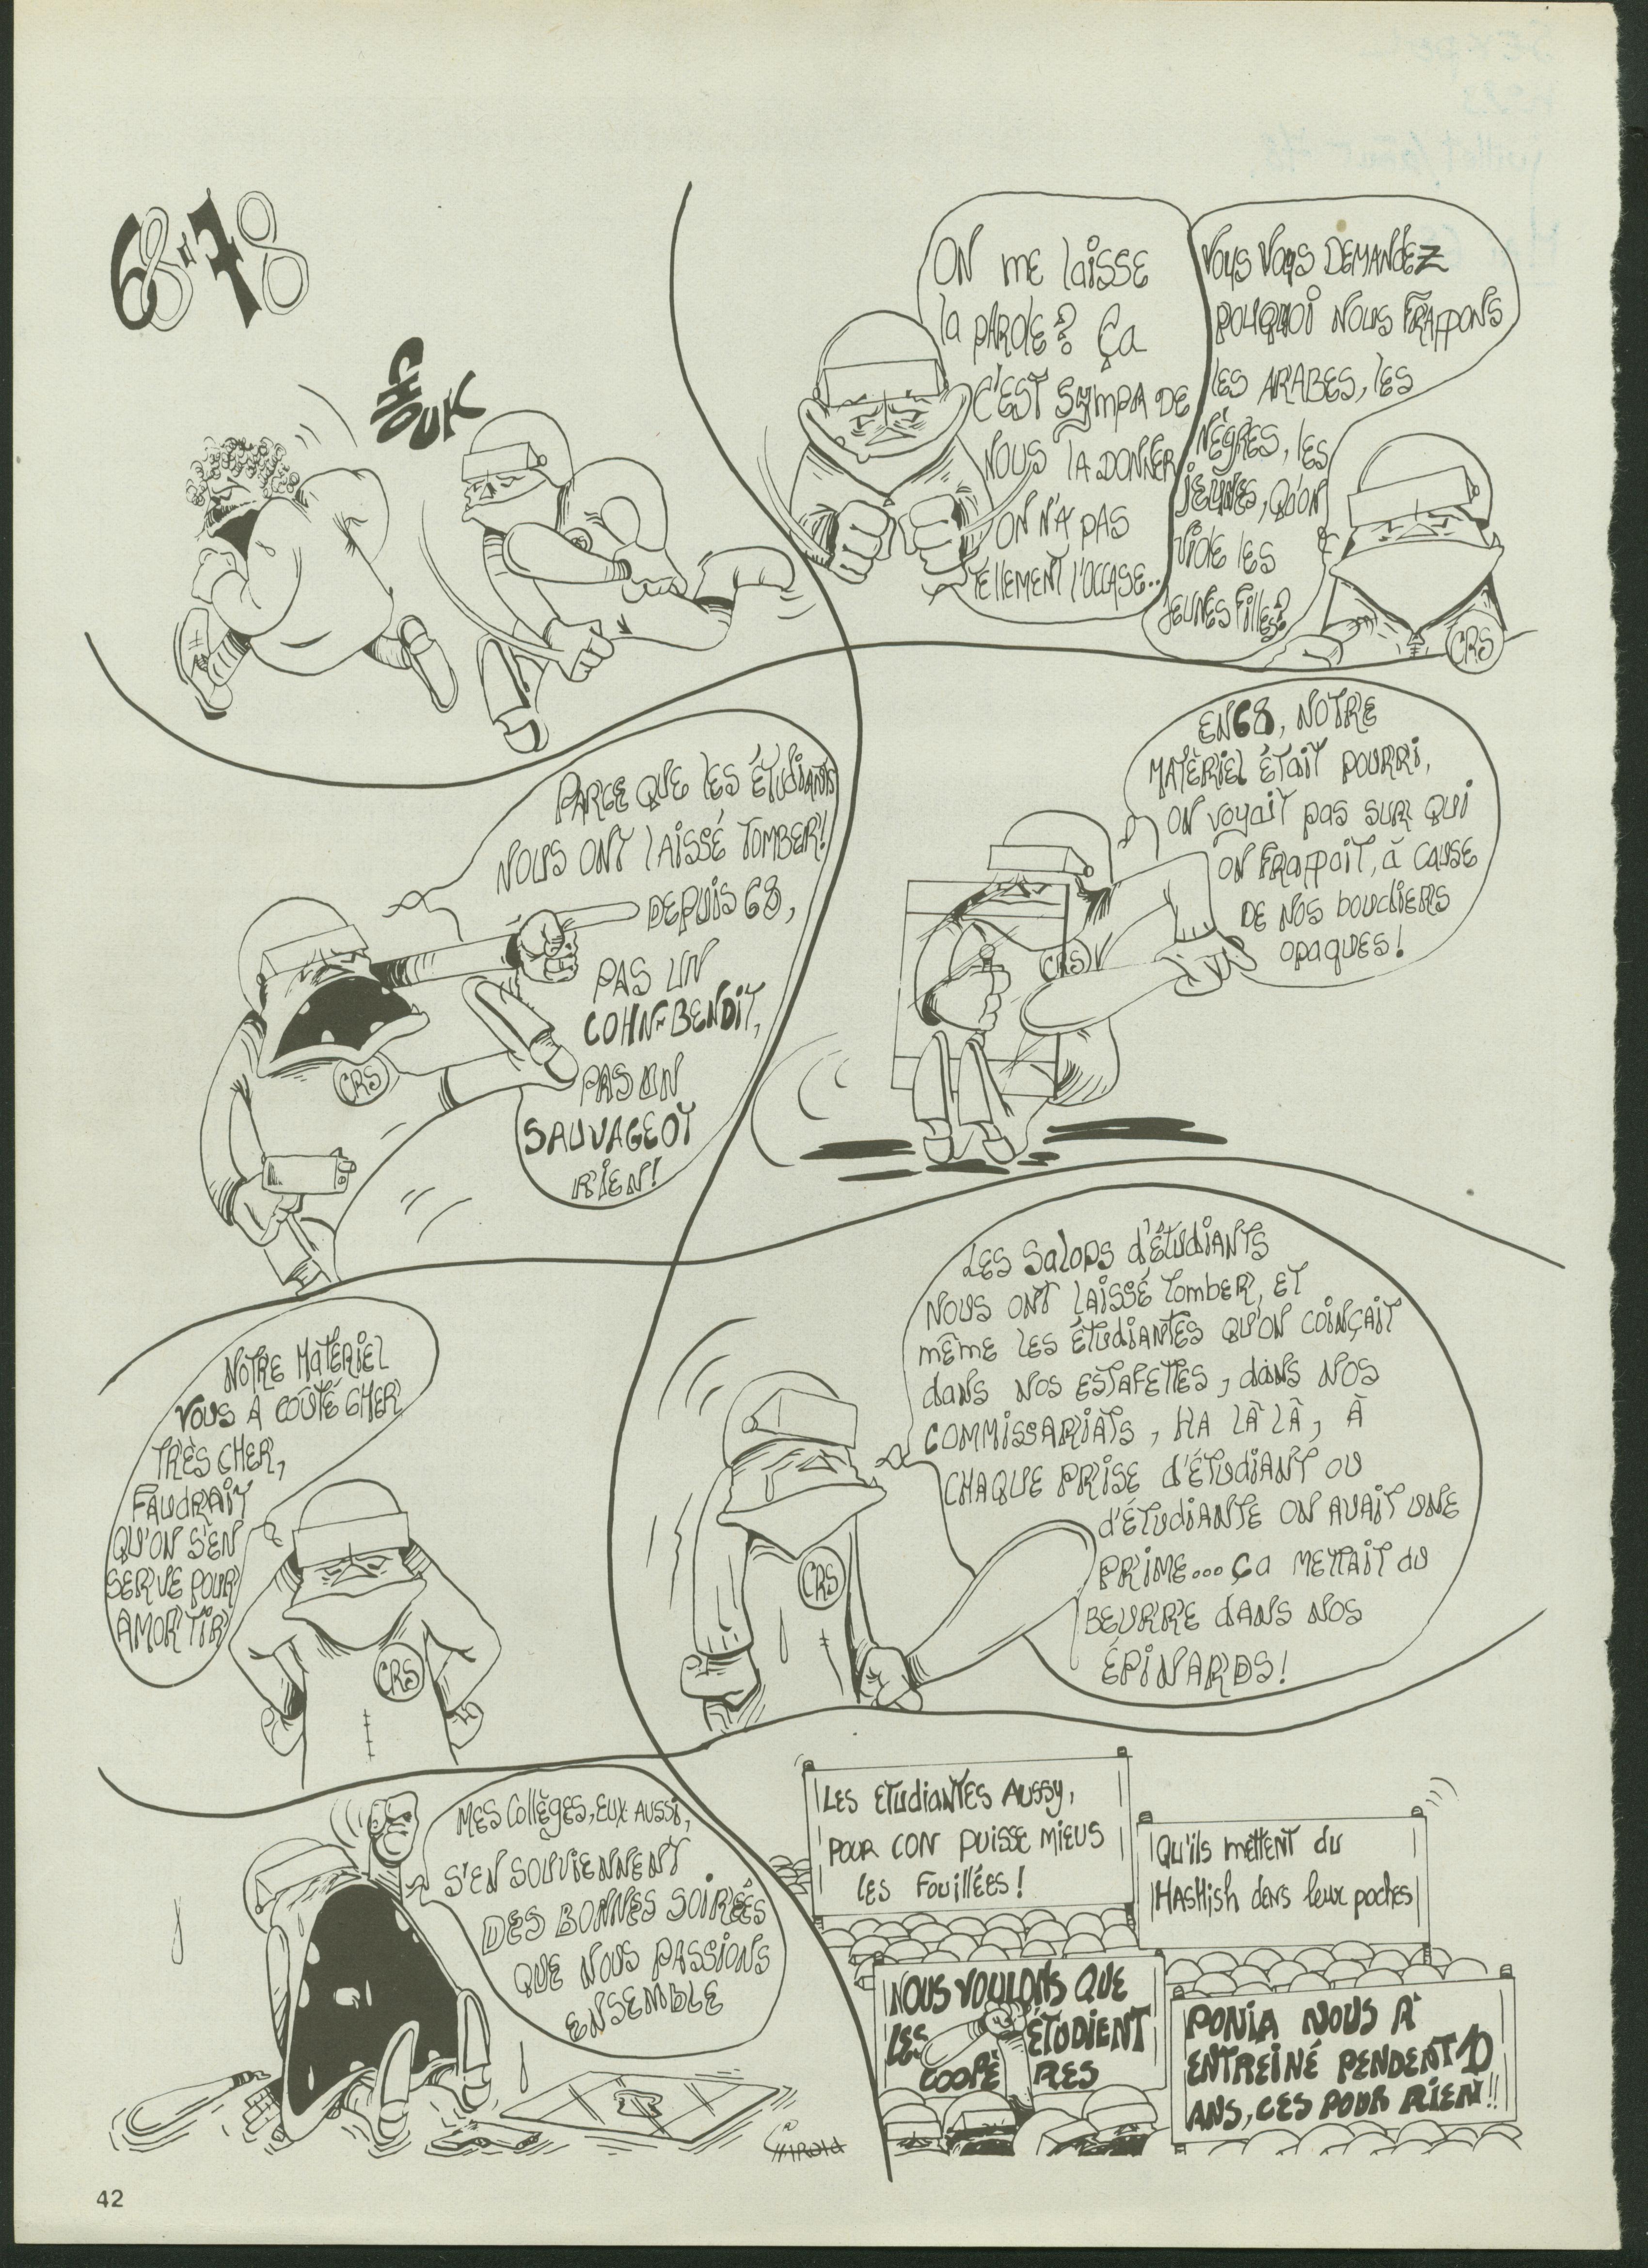 68-78
CHOUK
ON me laisse
la parole? Ça
C'EST sympa DE
NOUS la DONNER
ON N'A PAS
TELLEMENT l'OCCASE..
Vous Vous DEMANDEZ
POURQUOI NOUS FRAPPONS
les ARABES, les
NÈGRES, les
JEUNES, QU'ON
viole les
JEUNES Filles?
CRS
PARCE QUE les ÉTUDIANTS
NOUS ONT LAISSÉ TOMBER!
DEPUIS 68,
PAS UN
COHN-BENDIT,
PAS UN
SAUVAGEOT
RIEN!
CRS
EN 68, NOTRE
MATÈRIEL ÉTAIT POURRI,
ON voyait pas sur QUI
ON FRAPPAIT, à CAUSE
DE NOS boucliers
opaques!
CRS
NOTRE MATERIEL
VOUS A COÛTÉ CHER
TRÈS CHER,
FAUDRAIT
QU'ON S'EN
SERVE POUR
AMORTIR
CRS
LES SALOPS d'ÉTUDIANTS
NOUS ONT LAISSÉ TOMBER, ET
MÊME LES ÉTUDIANTES QU'ON COINÇAIT
dANS NOS ESTAFETTES, dANS NOS
COMMISSARIATS, HA LÀ LÀ, À
CHAQUE PRISE d'ÉTUDIANT OU
d'ÉTUDIANTE ON AVAIT UNE
PRIME... ÇA METTAIT du
BEURRE dANS NOS
ÉPINARDS!
CRS
MES COLLÈGES, EUX AUSSI,
S'EN SOUVIENNENT.
DES BONNES SOIRÉES
QUE NOUS PASSIONS
ENSEMBLE
LES ETUDIANTES AUSSY,
POUR CON PUISSE MIEUS
LES FOUILLÉES!
Qu'ils mettent du
HASHISH dans leux poches
NOUS VOULONS QUE
LES ÉTUDIENT
COOPÈ RES
PONIA NOUS A
ENTREINÉ PENDENT 10
ANS, CES POUR RIEN!!
42